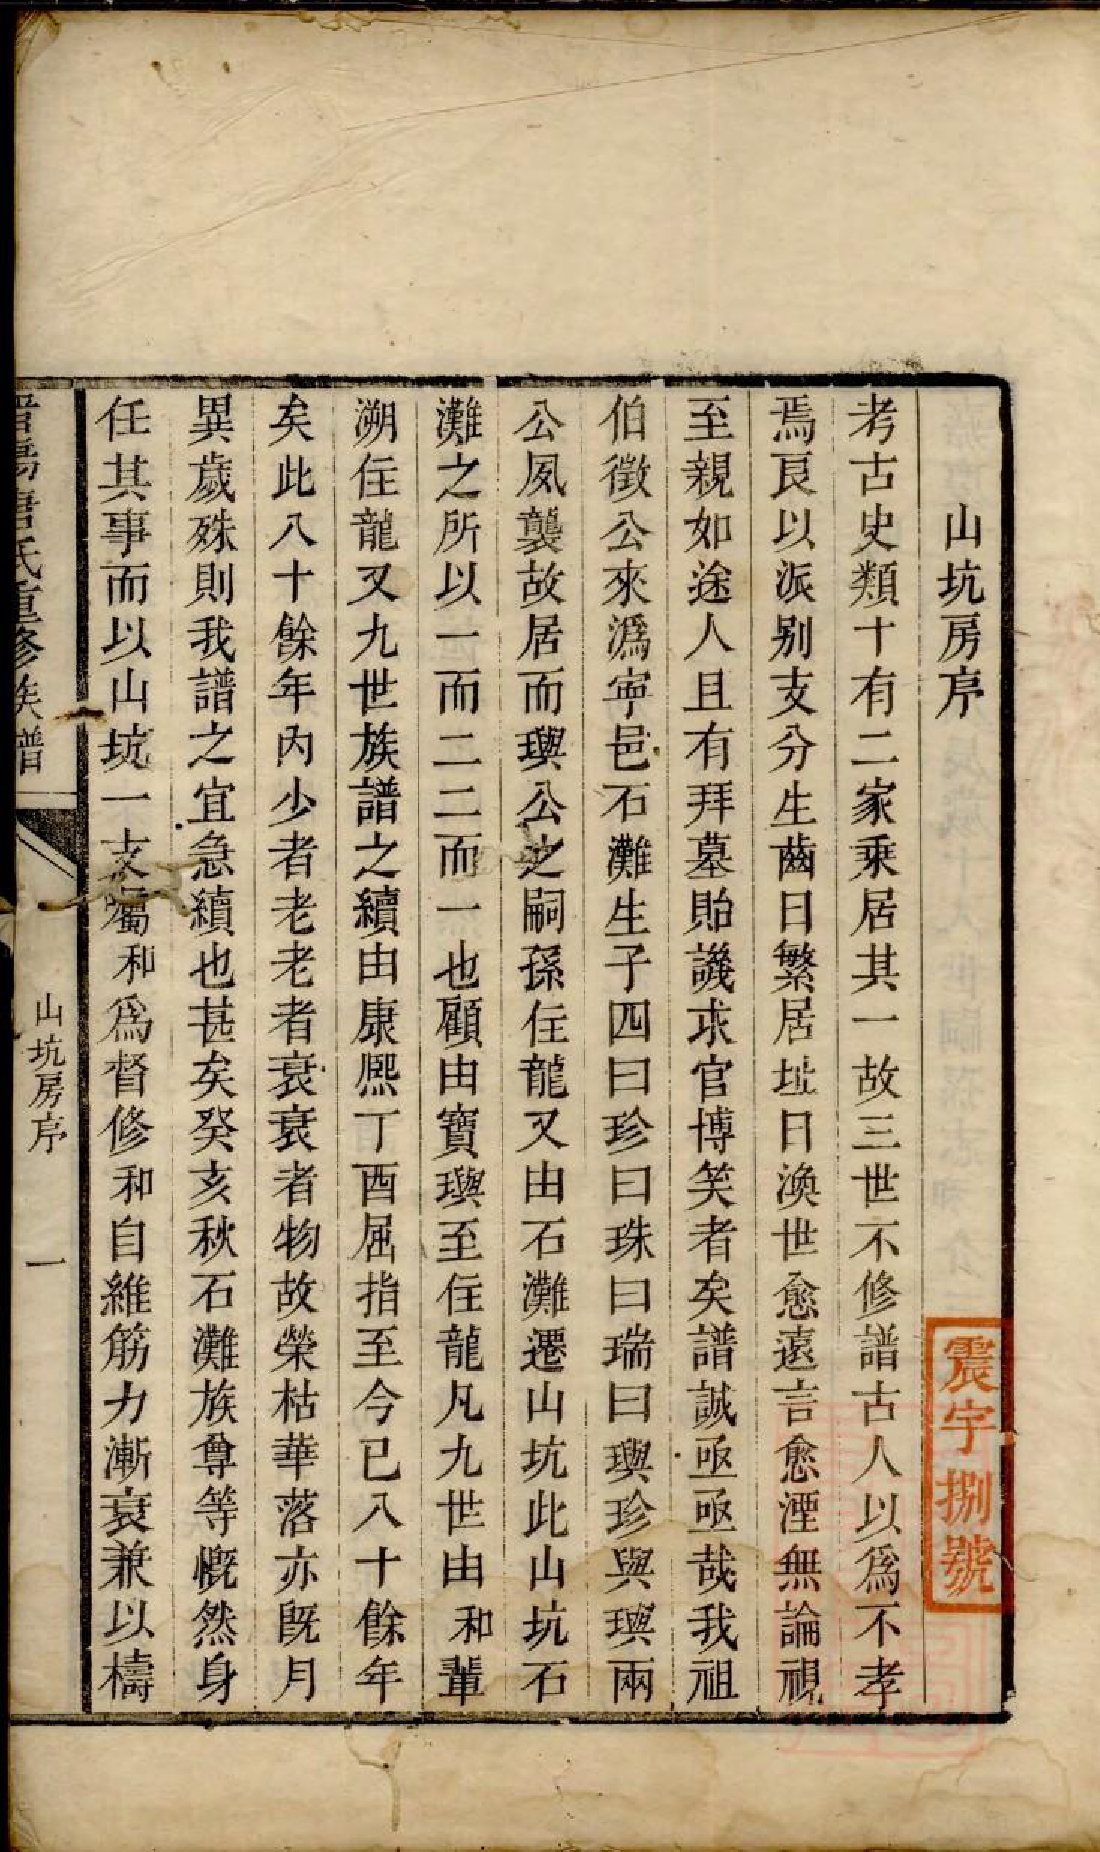 山坑房序
考古史類十有二家乘居其一故三世不修譜古人以爲不孝
焉良以派别支分生齒日繁居址日渙世愈遠言愈湮無論視
至親如途人且有拜墓貽譏求官博笑者矣譜誠亟亟哉我祖
伯徵公來潙寜邑石灘生子四曰珍曰珠曰瑞曰璵珍與璵兩
公夙襲故居而璵公之嗣孫住龍又由石灘遷山坑此山坑石
灘之所以一而二二而一也顧由寶璵至住龍凡九世由和輩
溯住龍又九世族譜之續由康熈丁酉屈指至今已八十餘年
矣此八十餘年內少者老老者衰衰者物故榮枯華落亦既月
異歲殊則我譜之宜急續也甚矣癸亥秋石灘族尊等慨然身
任其事而以山坑一支屬和爲督修和自維筋力漸衰兼以檮
氏重修族譜
山坑房序
一
震字捌號